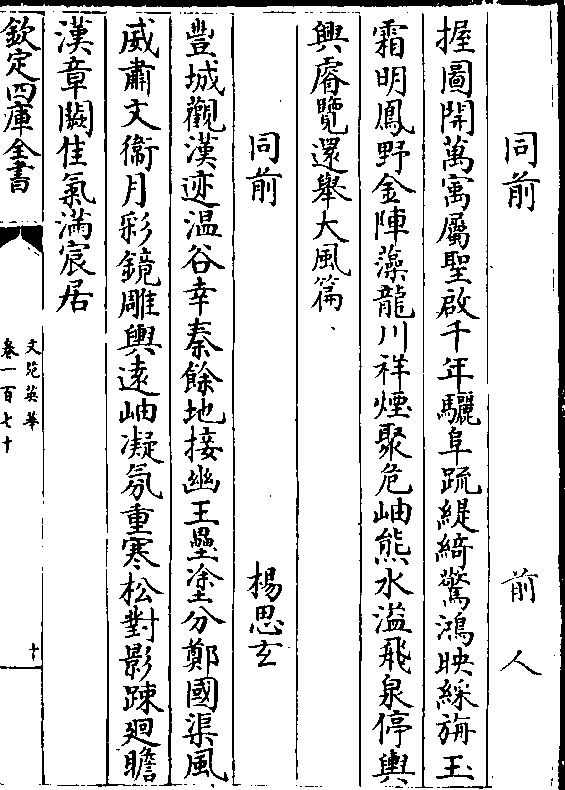 同前　前人
握圖開萬㝢屬聖啟千年驪阜䟽緹綺驚鴻映綵斾玉
霜明鳳野金陣藻龍川祥煙聚危岫熊水溢飛泉停輿
興睿覽還舉大風篇
同前　楊思玄
豐城觀漢迹温谷幸秦餘地接幽王壘塗分鄭國渠風
威肅文衞月彩鏡雕輿遠岫凝氛重寒松對影踈廻瞻
漢章闕佳氣滿宸居
欽定四庫全書
文苑英華
卷一百七十
十